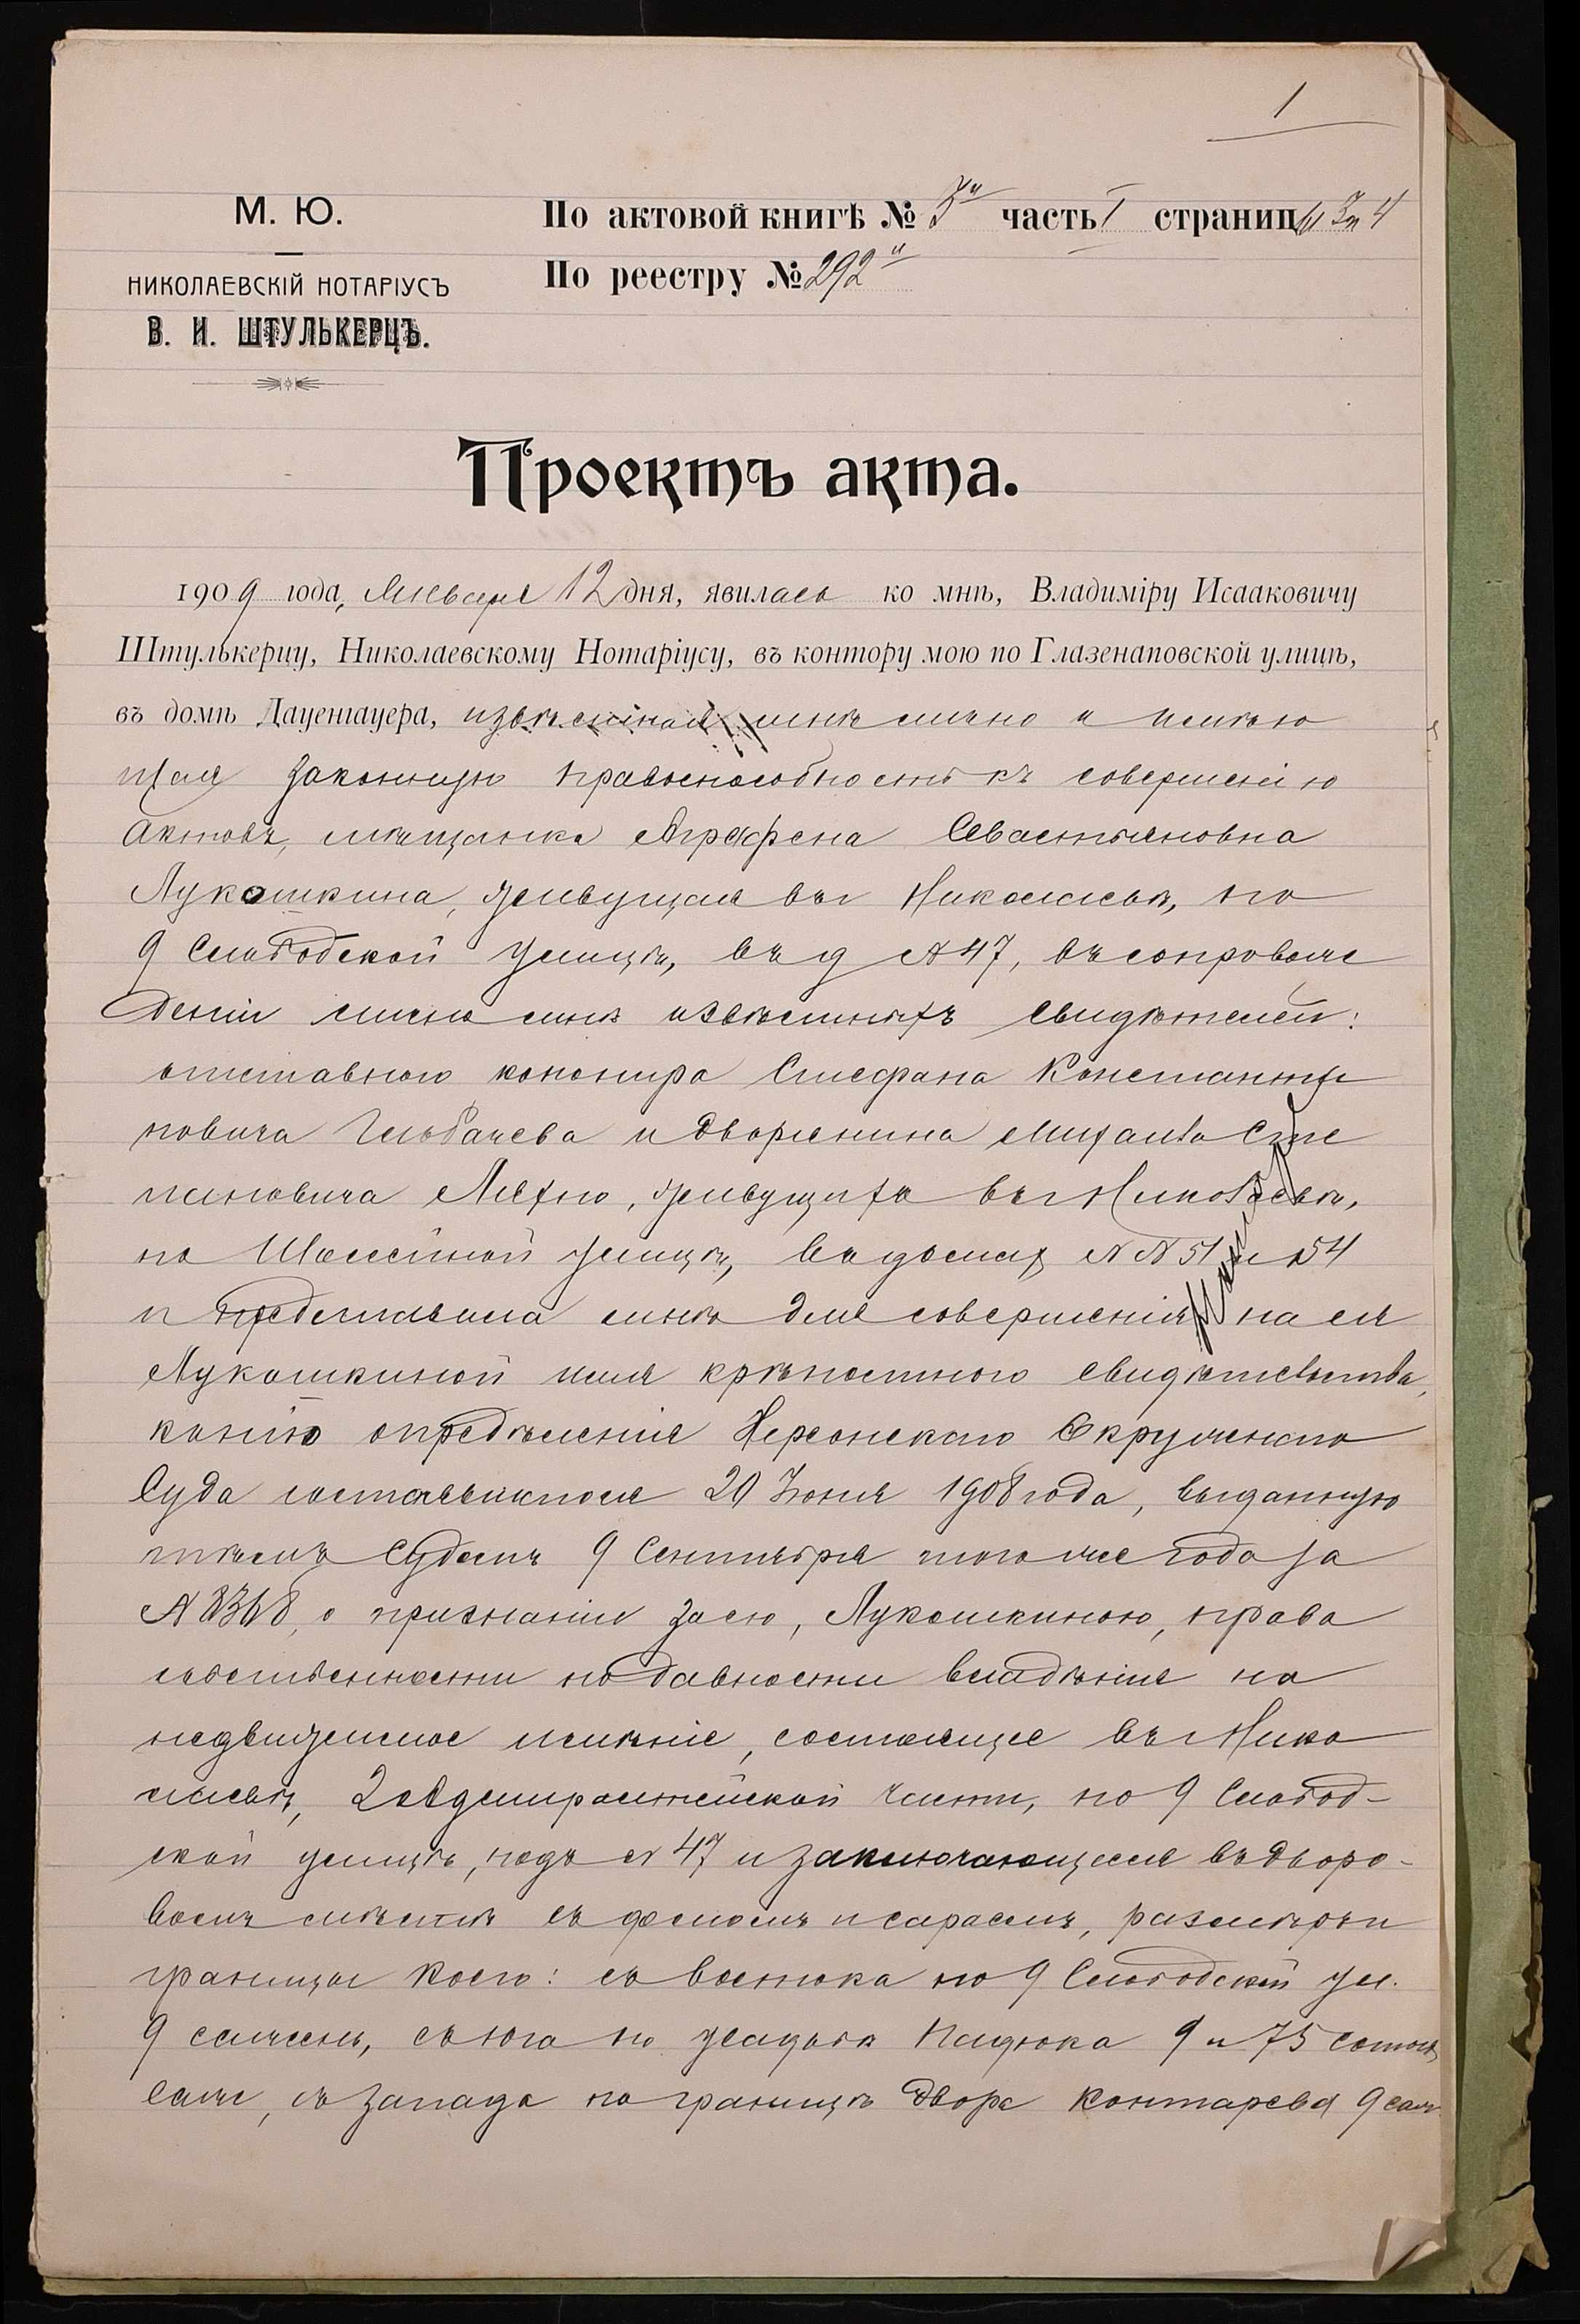 1
М. Ю.
НИКОЛАЕВСКІЙ НОТАРІУСЪ
В. И. ШТУЛЬКЕРЦЪ.
По актовой книгѣ № 3й часть I страницы 3 и 4
По реестру № 292й
Проектъ акта.
1909 года, Января 12 дня, явилась ко мнѣ, Владиміру Исааковичу
Штулькерцу, Николаевскому Нотаріусу, въ контору мою по Глазенаповской улицѣ,
въ домѣ Дауенгауера, извѣстная мнѣ лично и имѣю
щая законную правоспособность къ совершенію
актовъ, мѣщанка Аграфена Севастьяновна
Лукошкина, живущая въ г Николаевѣ, по
9 Слободской улицѣ, въ д № 47, въ сопровож
деніи лично мнѣ извѣстныхъ свидѣтелей:
отставного Стефана Константи
новича и дворянина Михаила Сте
пановича Ляхно, живущихъ въ г Николаевѣ,
по Шоссейной улицѣ, въ домах № № 51 и 54
и представила мнѣ для совершенія на ея
Лукошкиной имя крѣпостного свидѣтельства,
копію опредѣленія Херсонскаго Окружнаго
Суда состоявшагося 20 Іюня 1908 года, выданную
тѣмъ Судомъ 9 Сентября того же года за
№ 8368, о признаніи за ею, Лукошкиною, права
собственности по давности владѣнія на
недвижимое имѣніе, состоящее въ г Нико
лаевѣ, 2 Адмиралтейской части, по 9 Слобод-
ской улицѣ, подъ № 47 и заключающееся въ дворо-
вомъ мѣстѣ съ домомъ и сараемъ, размѣры и
границы коего: съ востока по 9 Слободской ул.
9 сажень, съ юга по усадьбѣ Пацюка 9 и 75 сотых
саж, съ запада по границѣ двора Контарева 9 саж